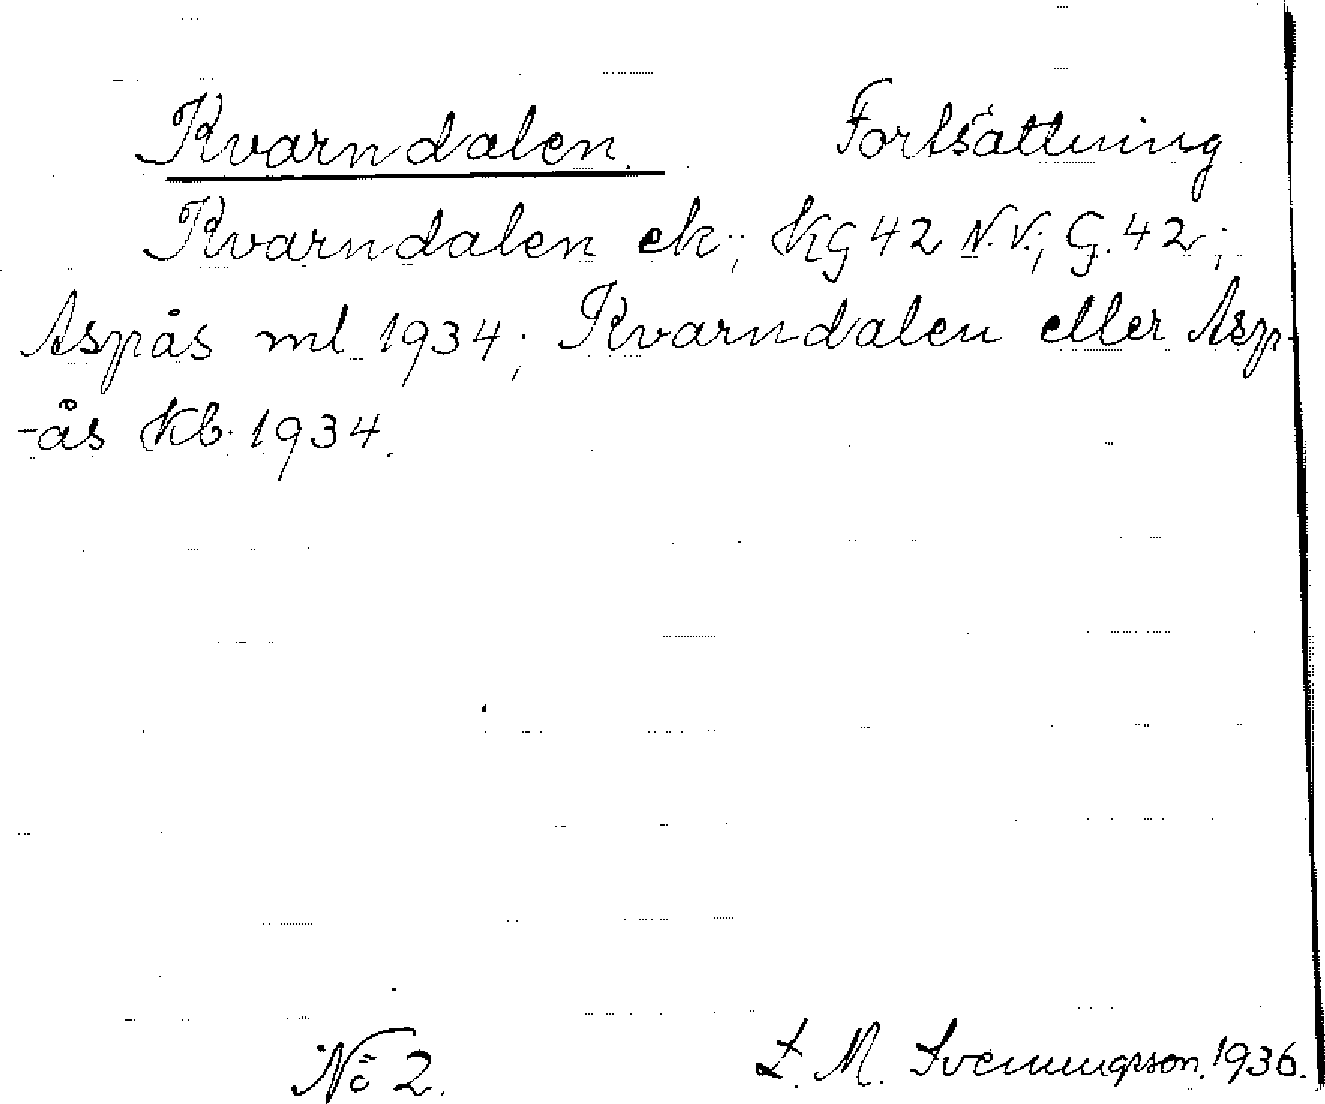 Kvarndalen. Fortsättning
Kvarndalen ek.; KG 42 N.V.; G. 42;
Aspås ml. 1934; Kvarndalen eller Asp-
-ås Kb. 1934.
No 2. L. M. Svenningsson. 1936.